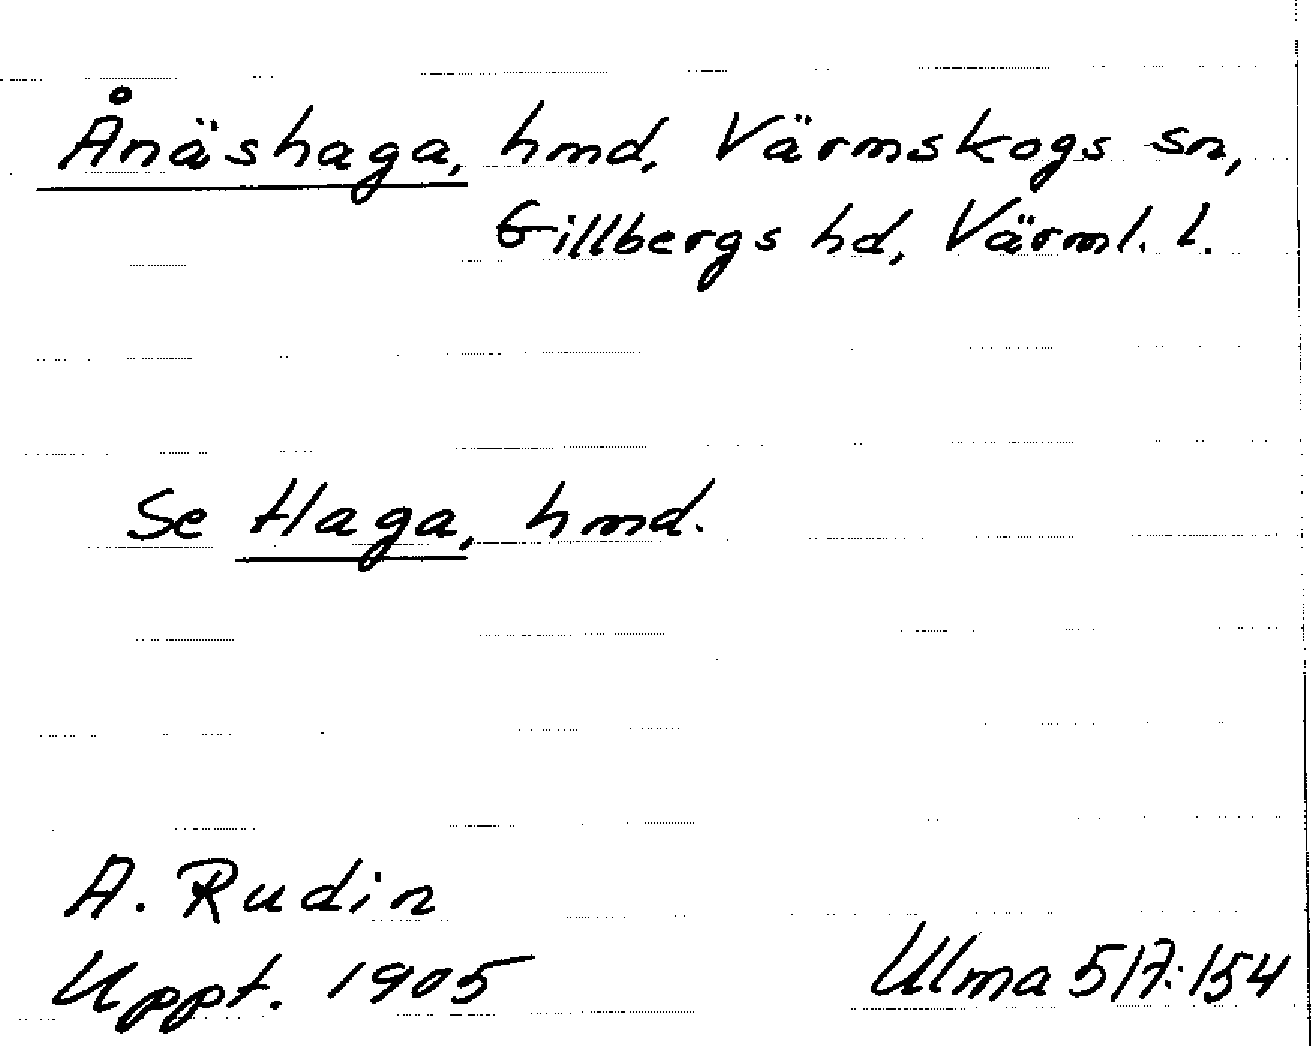 Ånäshaga, hmd, Värmskogs sn,
Gillbergs hd, Värml. l.
Se Haga, hmd.
A. Rudin
Uppt. 1905
Ulma 517:154